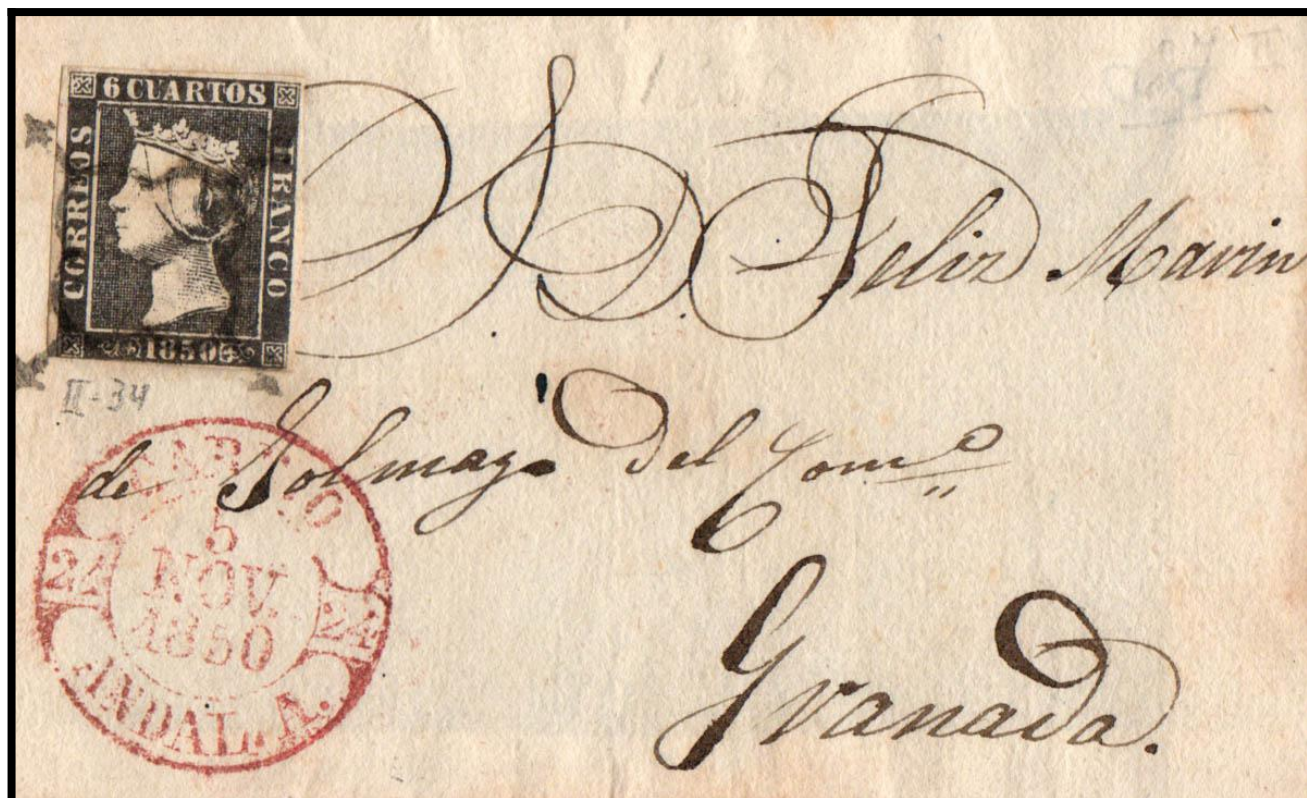 6 CUARTOS
CORREOS
FRANCO
1850
II-34
S. D. Feliz Marin
de del Comº
Granada.
5
NOV.
1850
24
24
ANDAL. A.